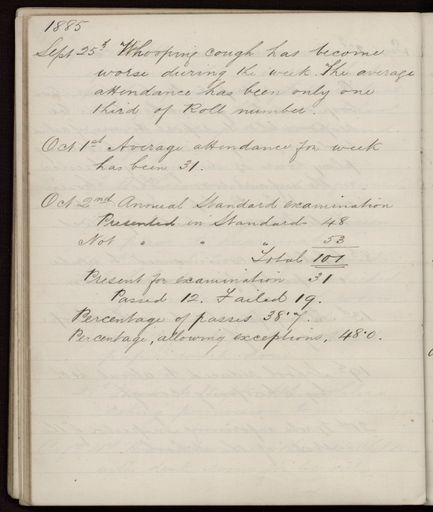 1885
Sept 25th Whooping cough has become
worse during the week. The average
attendance has been only one
third of Roll number.
Oct 1st Average attendance for week
has been 31.
Oct 2nd Annual Standard examination
Presented in Standards 48
Not " " " 53
Total 101
Present for examination 31
Passed 12. Failed 19.
Percentage of passes 38.7.
Percentage, allowing exceptions, 48.0.